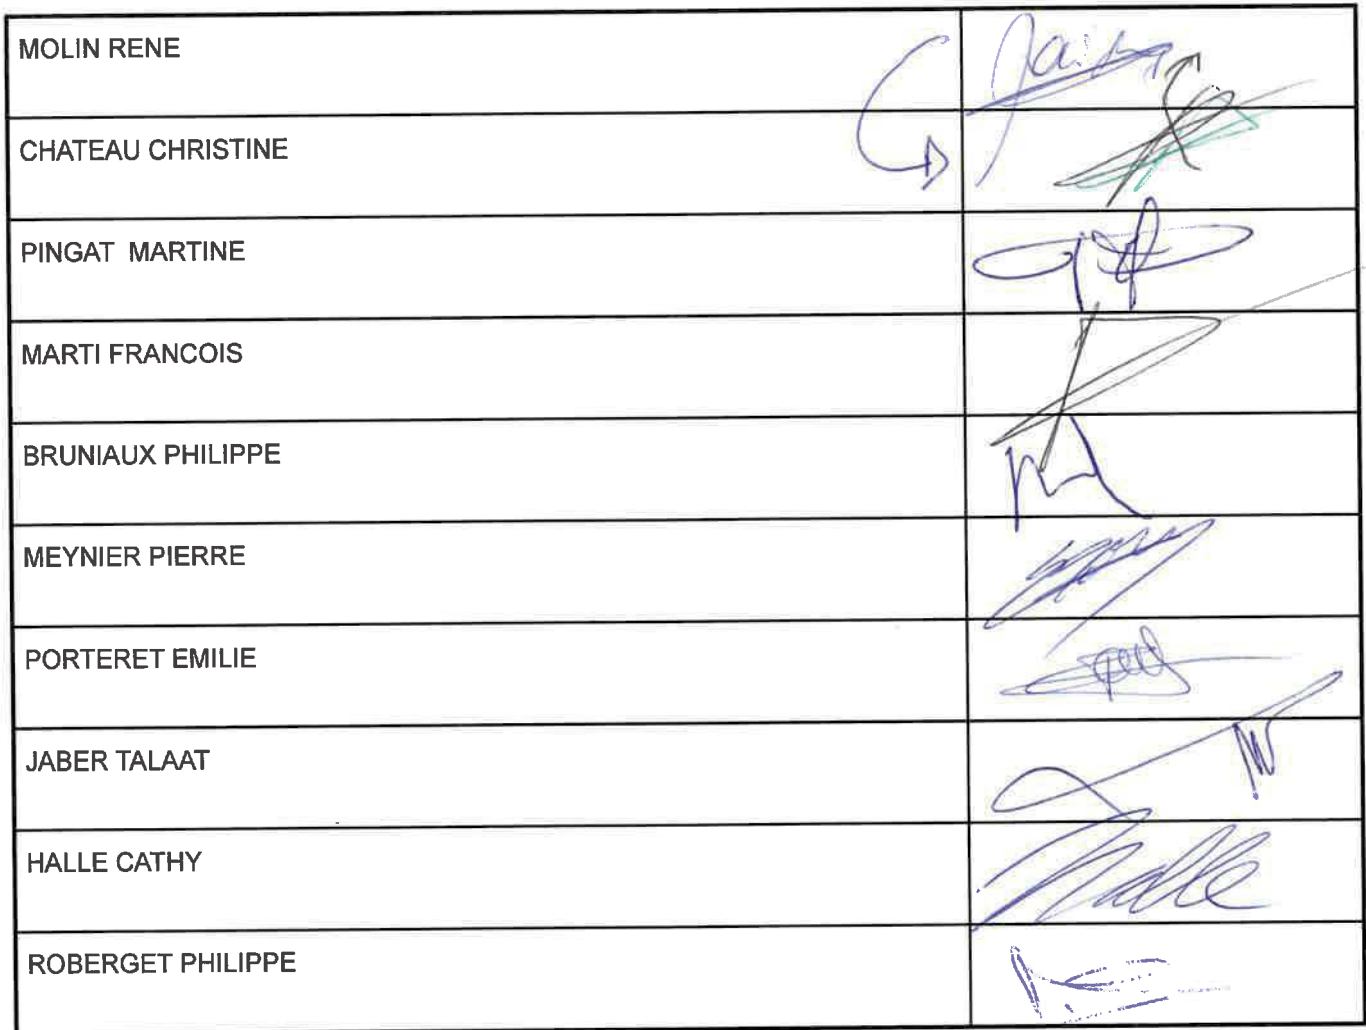 MOLIN RENE
CHATEAU CHRISTINE
PINGAT MARTINE
MARTI FRANCOIS
BRUNIAUX PHILIPPE
MEYNIER PIERRE
PORTERET EMILIE
JABER TALAAT
HALLE CATHY
Halle
ROBERGET PHILIPPE